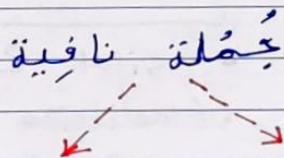 جُمُلة نافِية